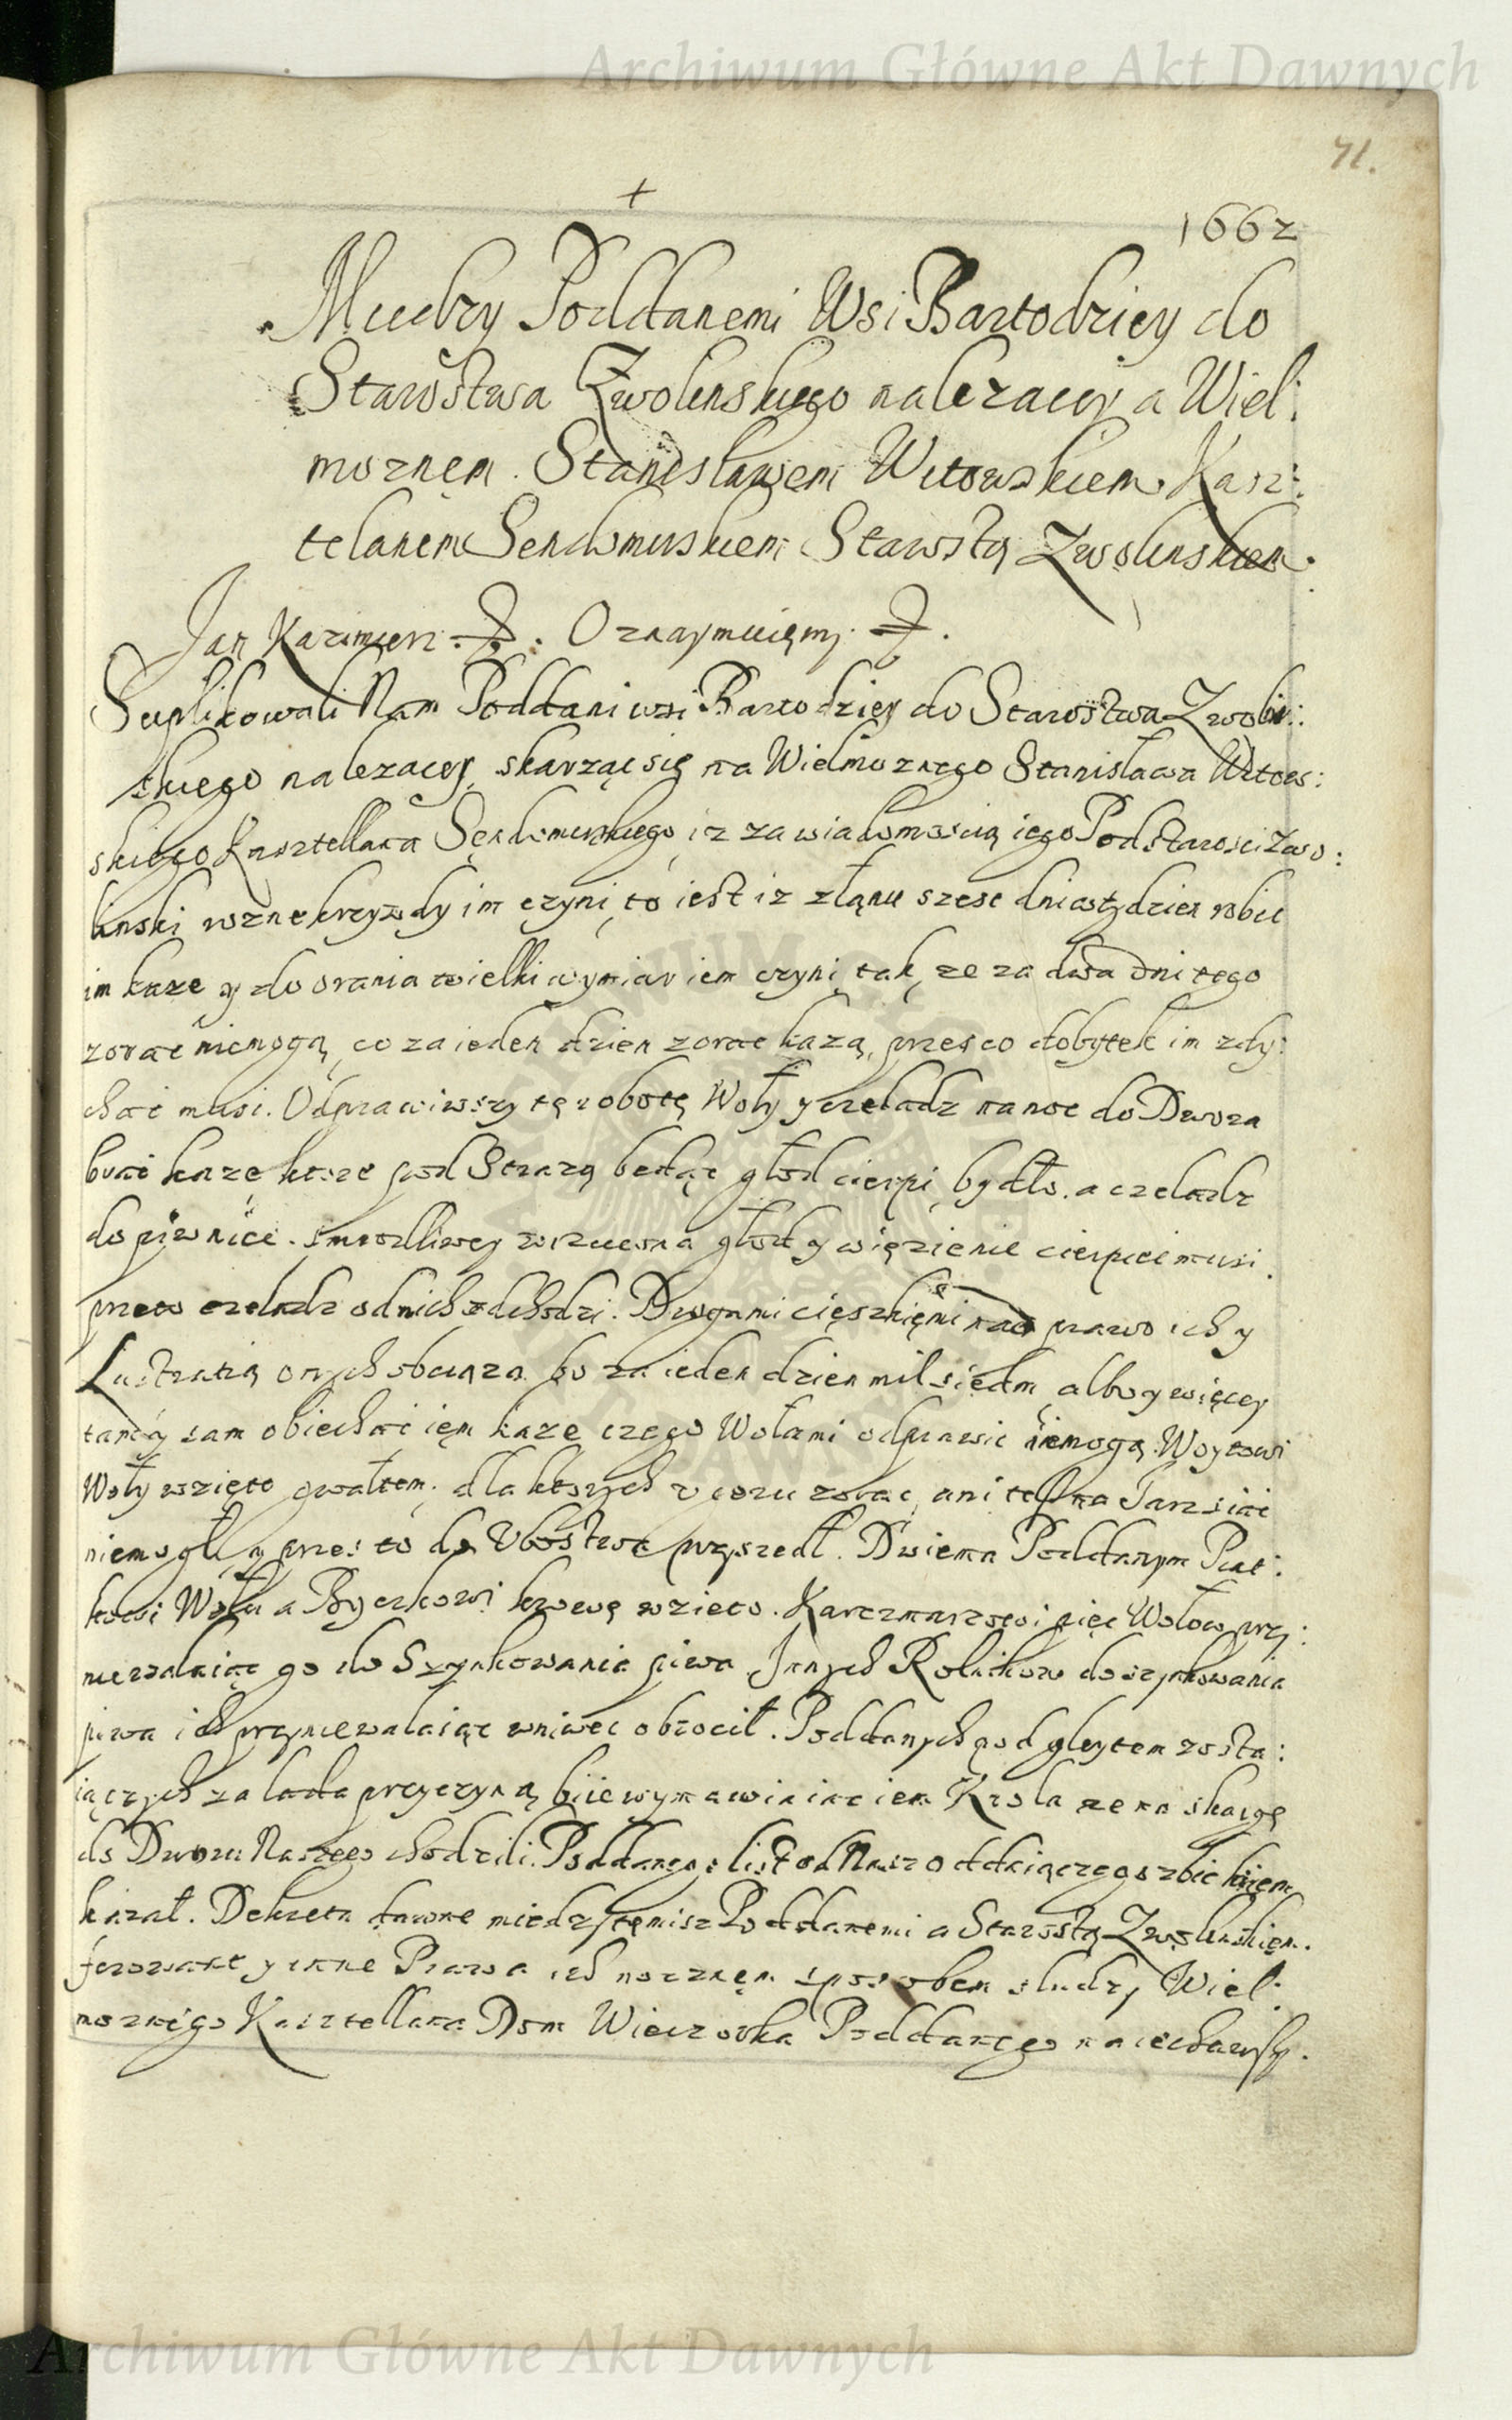 Archiwum Główne Akt Dawnych
71.
1662
Miedzy Poddanemi Wsi Bartodziey do
Starostwa Zwolenskiego nalezacey a Wiel:
moznęm Stanisławem Witowskiem Kasz:
telanem Sendomirskiem Starostą Zwolinskiem.
Jan Kazimierz. Oznaymuięmy.
Suplikowali Nam Poddani wsi Bartodziey do Starostwa Zwolin:
skiego nalezacey, skarząc się na Wielmoznego Stanisława Witows:
skiego Kasztellana Sęndomirskiego iz za wiadomoscią iego Podstarosci Zwo:
linski rozne krzywdy im czyni, to iest iz z łanu szesc dni w tydzien robic
im kaze y do orania wielki wymiar iem czyni, tak, ze za dwa dni tego
zorać niemogą, co za ieden dzien zorac kazą, przes co dobytek im zdy:
chać musi. Odprawiwszy tę robotę Woły y czeladz na noc do Dwora
brać kaze ktore pod Strazą będąc głod cierpi bydło, a czeladz
do piwnice smrodliwey wrzucona głod y więzienie cierpiec musi.
przeto czeladz od nich odchodzi. Drogami cięszkięmi nad prawo ich y
Lustratią onych obciąza bo za ieden dzien mil siedm albo y więcey
tam y sam obiechać ięm kaze czego Wołami odprawic niemogą. Woytowi
Woły wzięto gwałtem, dla ktorych ugoru zorac, ani tesz na Jarz siać
niemogł, y przes to do Ubostwa przyszedł. Dwiema Poddanym Piąt:
kowi Wołu a Byczkowi krowę wzieto. Karczmarzowi pięc Wołow przy:
niewalaiąc go do Szynkowania piwa Jnnych Rolnikow do szynkowania
piwa ich przyniewalaiąc wniwec obrocił. Poddanych pod gleytem zosta:
iących za lada przyczyną biie wymawiaiąc iem Krola ze na skargę
do Dworu Naszego chodzili. Poddanego list od Nas oddaiączego zbic kiiem
kazał. Dekreta dawne miedzy tęmisz Poddanemi a Starostą Zwolinskięm
ferowane y inne Prawa ich nocznęm sposobem słudzy Wiel:
moznego Kasztellana Dom Wieczorka Poddanego naiechawszy.
Archiwum Główne Akt Dawnych